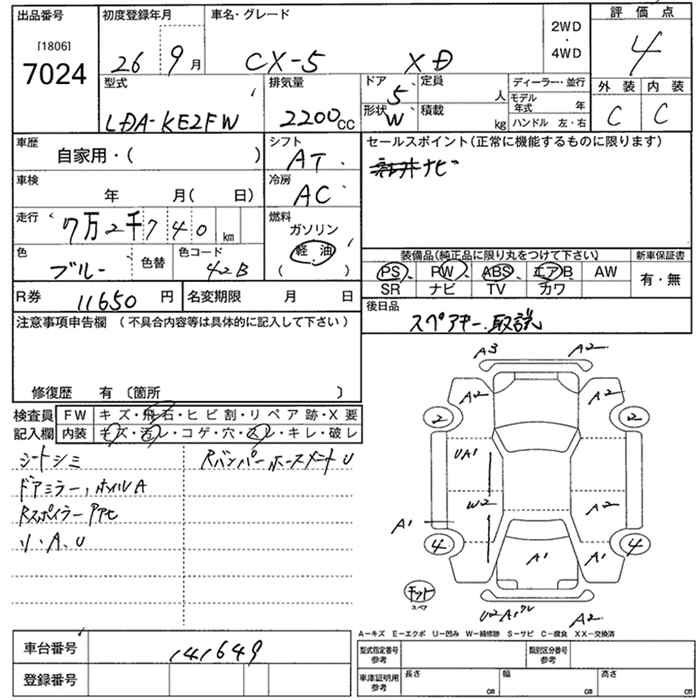 出品番号
[1806]
7024
初度登録年月
26 9月
車名・グレード
CX-5 XD
2WD
・
4WD
評価点
4
外装 内装
C C
型式
LDA-KE2FW
排気量
2200cc
ドア
5
形状
W
定員 人
積載 kg
ディーラー・並行
モデル年式 年
ハンドル 左・右
車歴
自家用・( )
シフト
AT
セールスポイント(正常に機能するものに限ります)
ナビ
車検
年 月( 日)
冷房
AC
走行
7万2千740km
燃料
ガソリン
軽油
( )
色
ブルー
色替
色コード
42B
装備品(純正品に限り丸をつけて下さい)
PS PW ABS エアB AW
SR ナビ TV カワ
新車保証書
有・無
R券 11650円
名変期限 月 日
後日品
スペアキー、取説
注意事項申告欄 (不具合内容等は具体的に記入して下さい)
修復歴 有 〔箇所 〕
検査員
記入欄
FW キズ・飛石・ヒビ割・リペア跡・X要
内装 キズ・汚レ・コゲ・穴・スレ・キレ・破レ
シートシミ
Rバンパーホースメント U
ドアミラー、ホイルA
Rスポイラー
リ・A、U
A3 A2
A2 A2
2 2
UA1
W2 A2
A1
4 4
A1 A1
キット
スペア
U2A1 A2
A-キズ E-エクボ U-凹み W-補修跡 S-サビ C-腐食 XX-交換済
車台番号 141649
登録番号
型式指定番号
参考
類別区分番号
参考
車庫証明用
参考
長さ cm
幅 cm
高さ cm